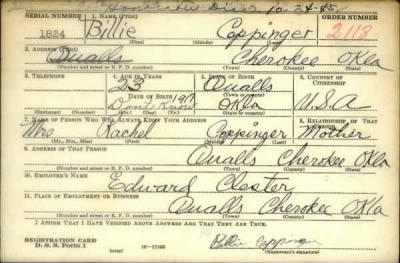 Honorable Disc. 10-24-45
SERIAL NUMBER 1. NAME (Print) ORDER NUMBER
1824 Billie Coppinger 2118
(First) (Middle) (Last)
2. ADDRESS (Print)
Qualls Cherokee Okla
(Number and street or R. F. D. number) (Town) (County) (State)
3. TELEPHONE 4. AGE IN YEARS 5. PLACE OF BIRTH 6. COUNTRY OF CITIZENSHIP
23 Qualls
DATE OF BIRTH
Don't Know 1917 Okla U.S.A
7. NAME OF PERSON WHO WILL ALWAYS KNOW YOUR ADDRESS 8. RELATIONSHIP OF THAT PERSON
Mrs Rachel Coppinger Mother
(Mr., Mrs., Miss) (First) (Middle) (Last)
9. ADDRESS OF THAT PERSON
Qualls Cherokee Okla
(Number and street or R. F. D. number) (Town) (County) (State)
10. EMPLOYER'S NAME
Edward Clester
11. PLACE OF EMPLOYMENT OR BUSINESS
Qualls Cherokee Okla
(Number and street or R. F. D. number) (Town) (County) (State)
I AFFIRM THAT I HAVE VERIFIED ABOVE ANSWERS AND THAT THEY ARE TRUE.
REGISTRATION CARD
D. S. S. Form 1 Billie Coppinger
(Registrant's signature)